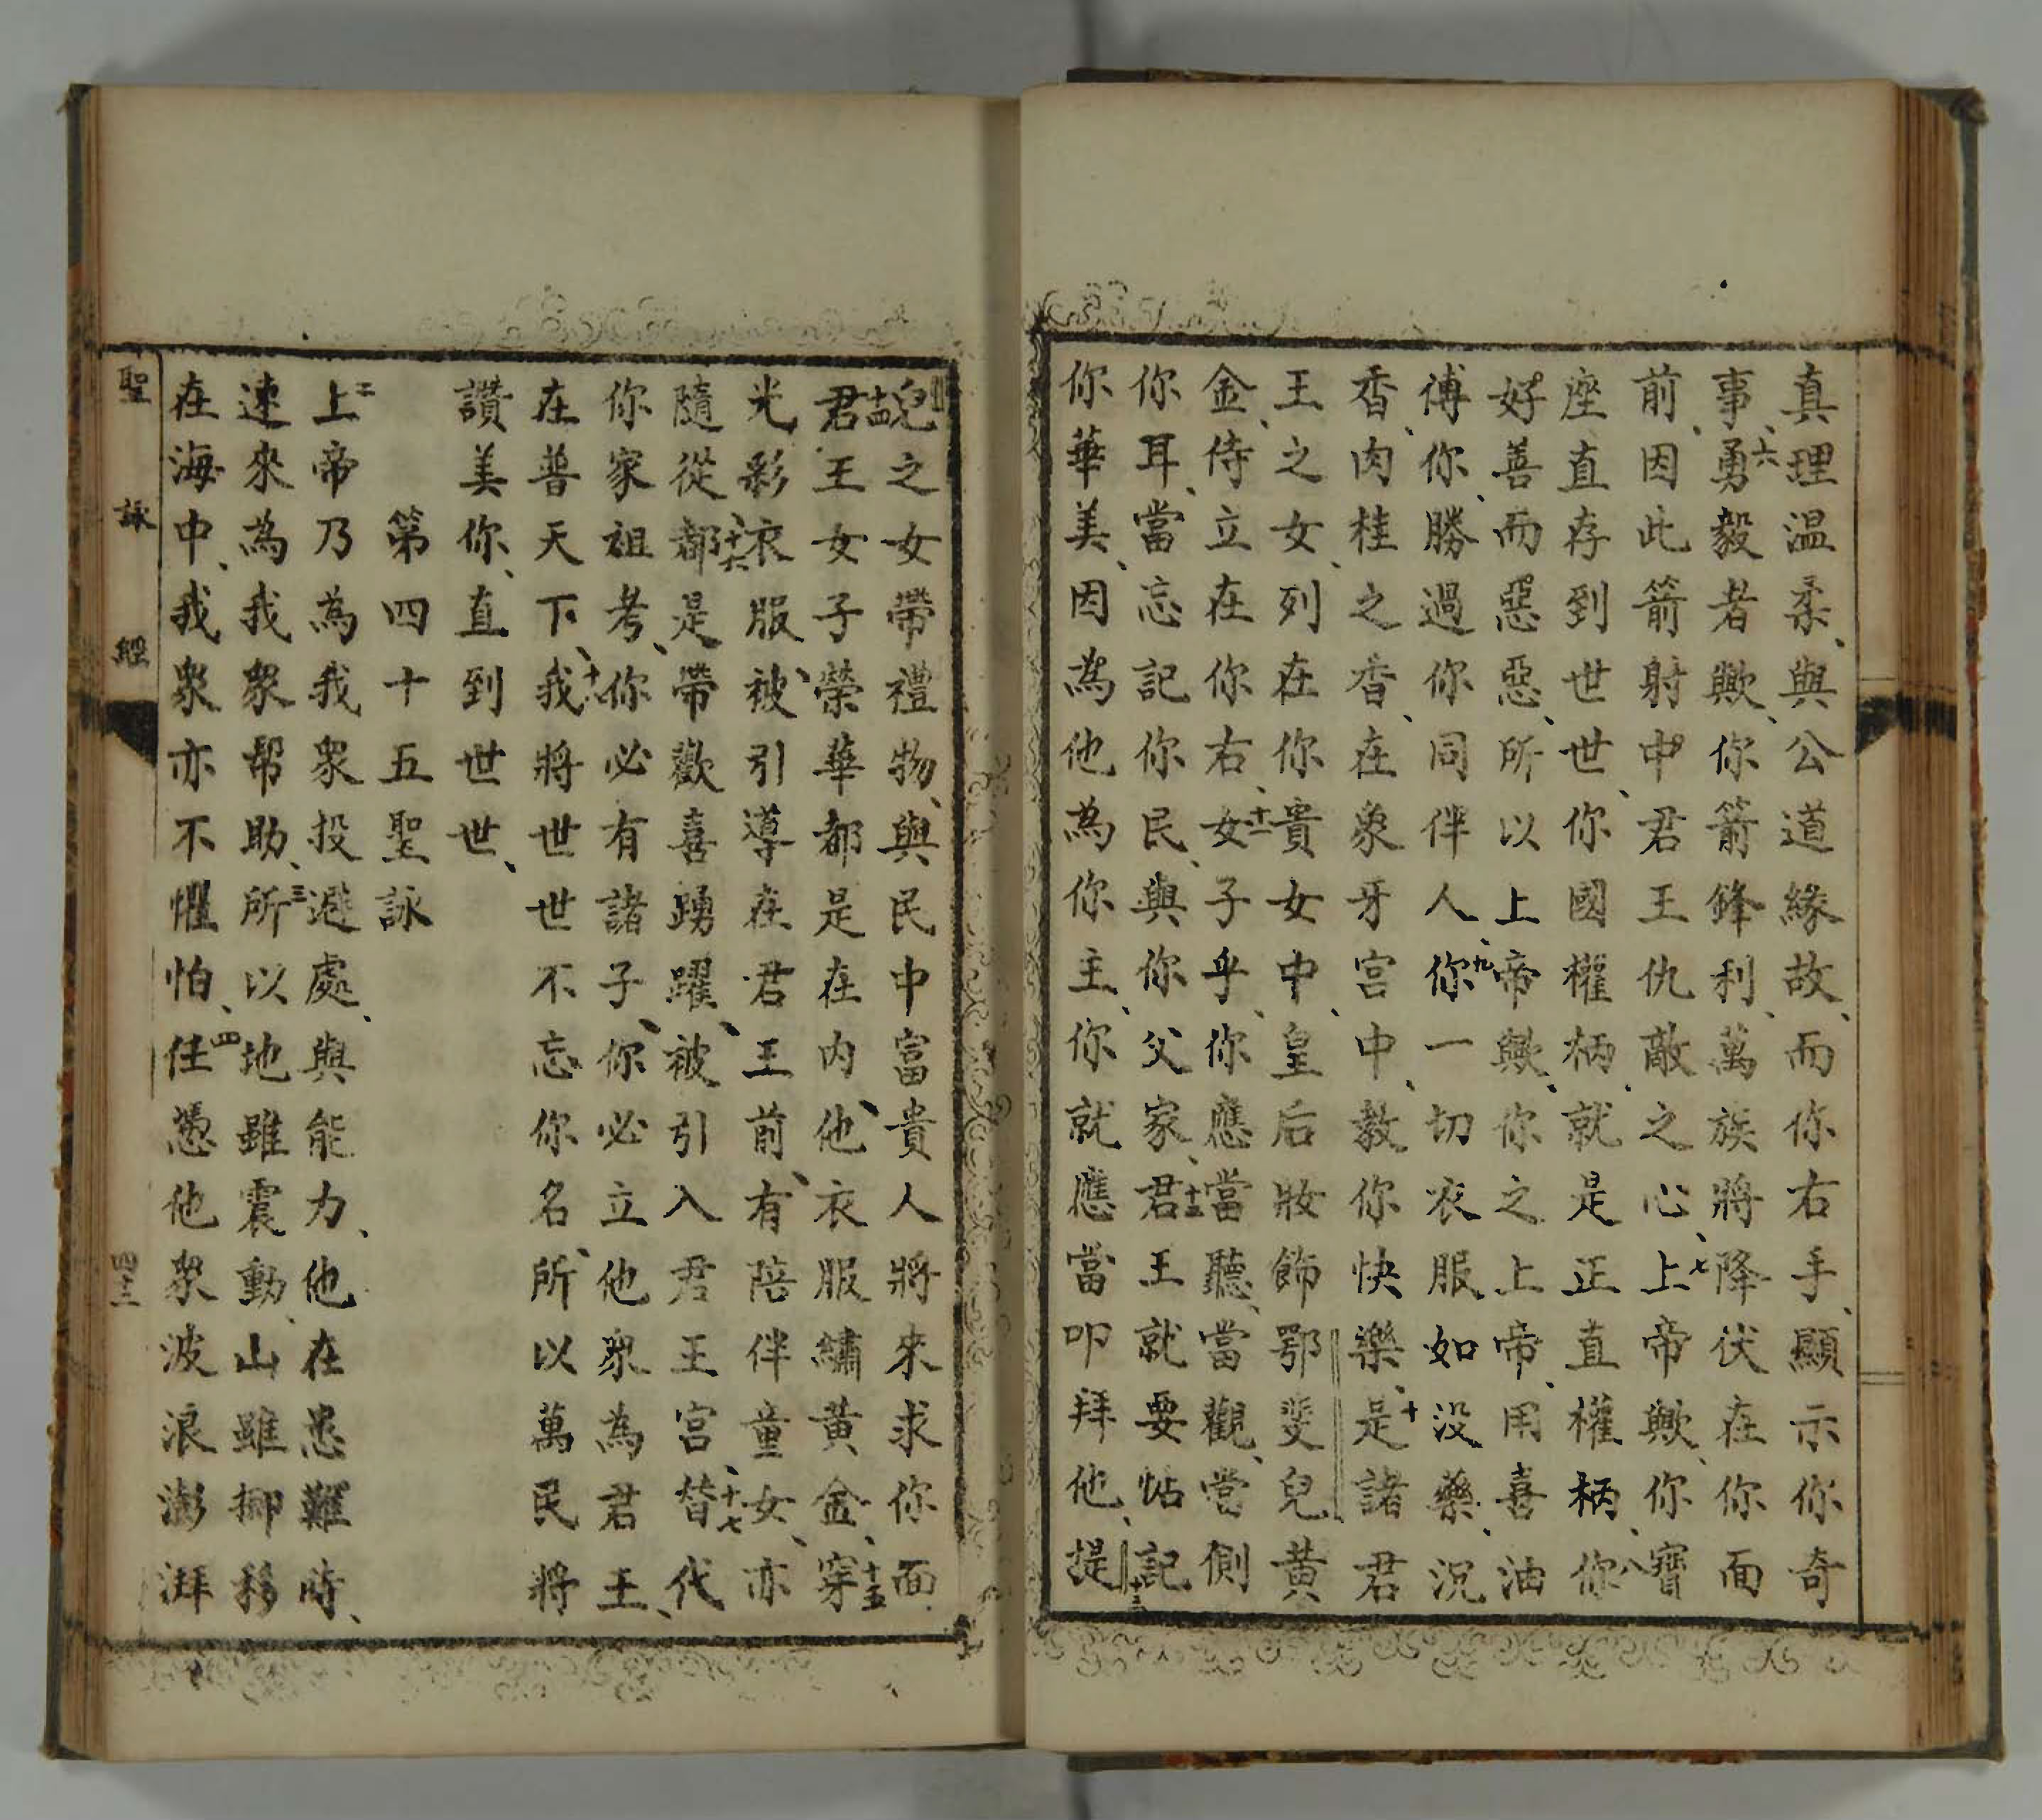 真理温柔、與公道緣故、而你右手、顯示你奇
事、六勇毅者歟、你箭鋒利、萬族將降伏在你面
前、因此箭射中君王仇敵之心、七上帝歟、你寶
座直存到世世、你國權柄、就是正直權柄、八你
好善而惡惡、所以上帝歟、你之上帝、用喜油
傅你、勝過你同伴人、九你一切衣服如没藥、沉
香、肉桂之香、在象牙宫中、教你快樂、十是諸君
王之女、列在你貴女中、皇后妝飾鄂斐兒黄
金、侍立在你右、十一女子乎、你應當聽、當觀、當側
你耳、當忘記你民、與你父家、十二君王就要惦記
你華美、因為他為你主、你就應當叩拜他、十三提
皃之女帶禮物、與民中富貴人將來求你面、
十四君王女子榮華都是在内、他衣服繡黄金、十五穿
光彩衣服、被引導在君王前、有陪伴童女、亦
隨從、十六都是帶歡喜踴躍、被引入君王宫、十七替代
你家祖考、你必有諸子、你必立他衆為君王、
在普天下、十八我將世世不忘你名、所以萬民將
讚美你、直到世世、
第四十五聖詠
二上帝乃為我衆投避處、與能力、他在患難時、
速來為我衆帮助、三所以地雖震動、山雖挪移
在海中、我衆亦不懼怕、四任憑他衆波浪澎湃
聖詠經
四十三